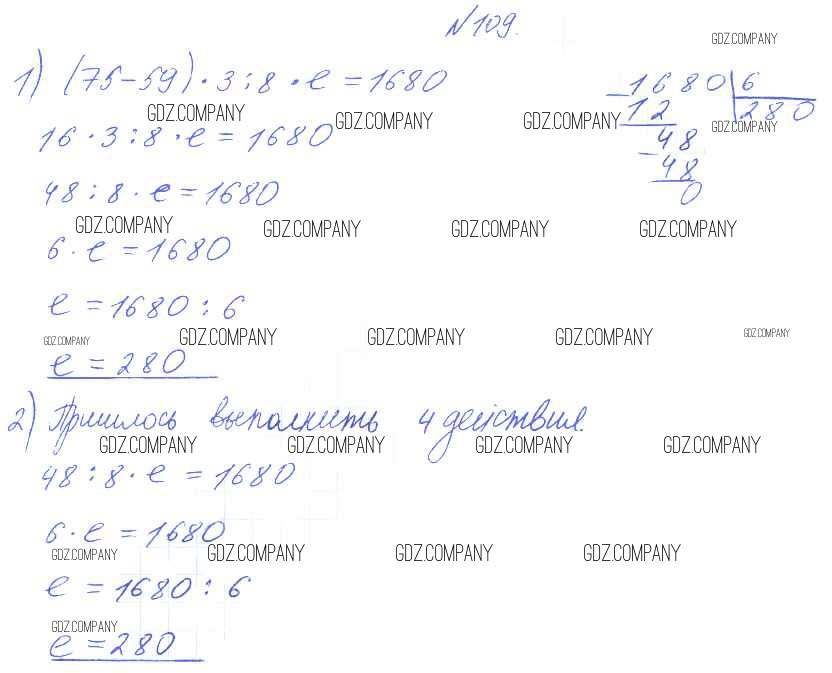 №109.
GDZ.COMPANY
1) (75-59)·3:8·e=1680
1680 6
GDZ.COMPANY GDZ.COMPANY GDZ.COMPANY GDZ.COMPANY
12 280
16·3:8·e=1680
48
48:8·e=1680
48
0
GDZ.COMPANY GDZ.COMPANY GDZ.COMPANY GDZ.COMPANY
6·e=1680
e=1680:6
GDZ.COMPANY GDZ.COMPANY GDZ.COMPANY GDZ.COMPANY GDZ.COMPANY
e=280
2) Пришлось выполнить 4 действия.
GDZ.COMPANY GDZ.COMPANY GDZ.COMPANY GDZ.COMPANY
48:8·e=1680
6·e=1680
GDZ.COMPANY GDZ.COMPANY GDZ.COMPANY GDZ.COMPANY
e=1680:6
GDZ.COMPANY
e=280